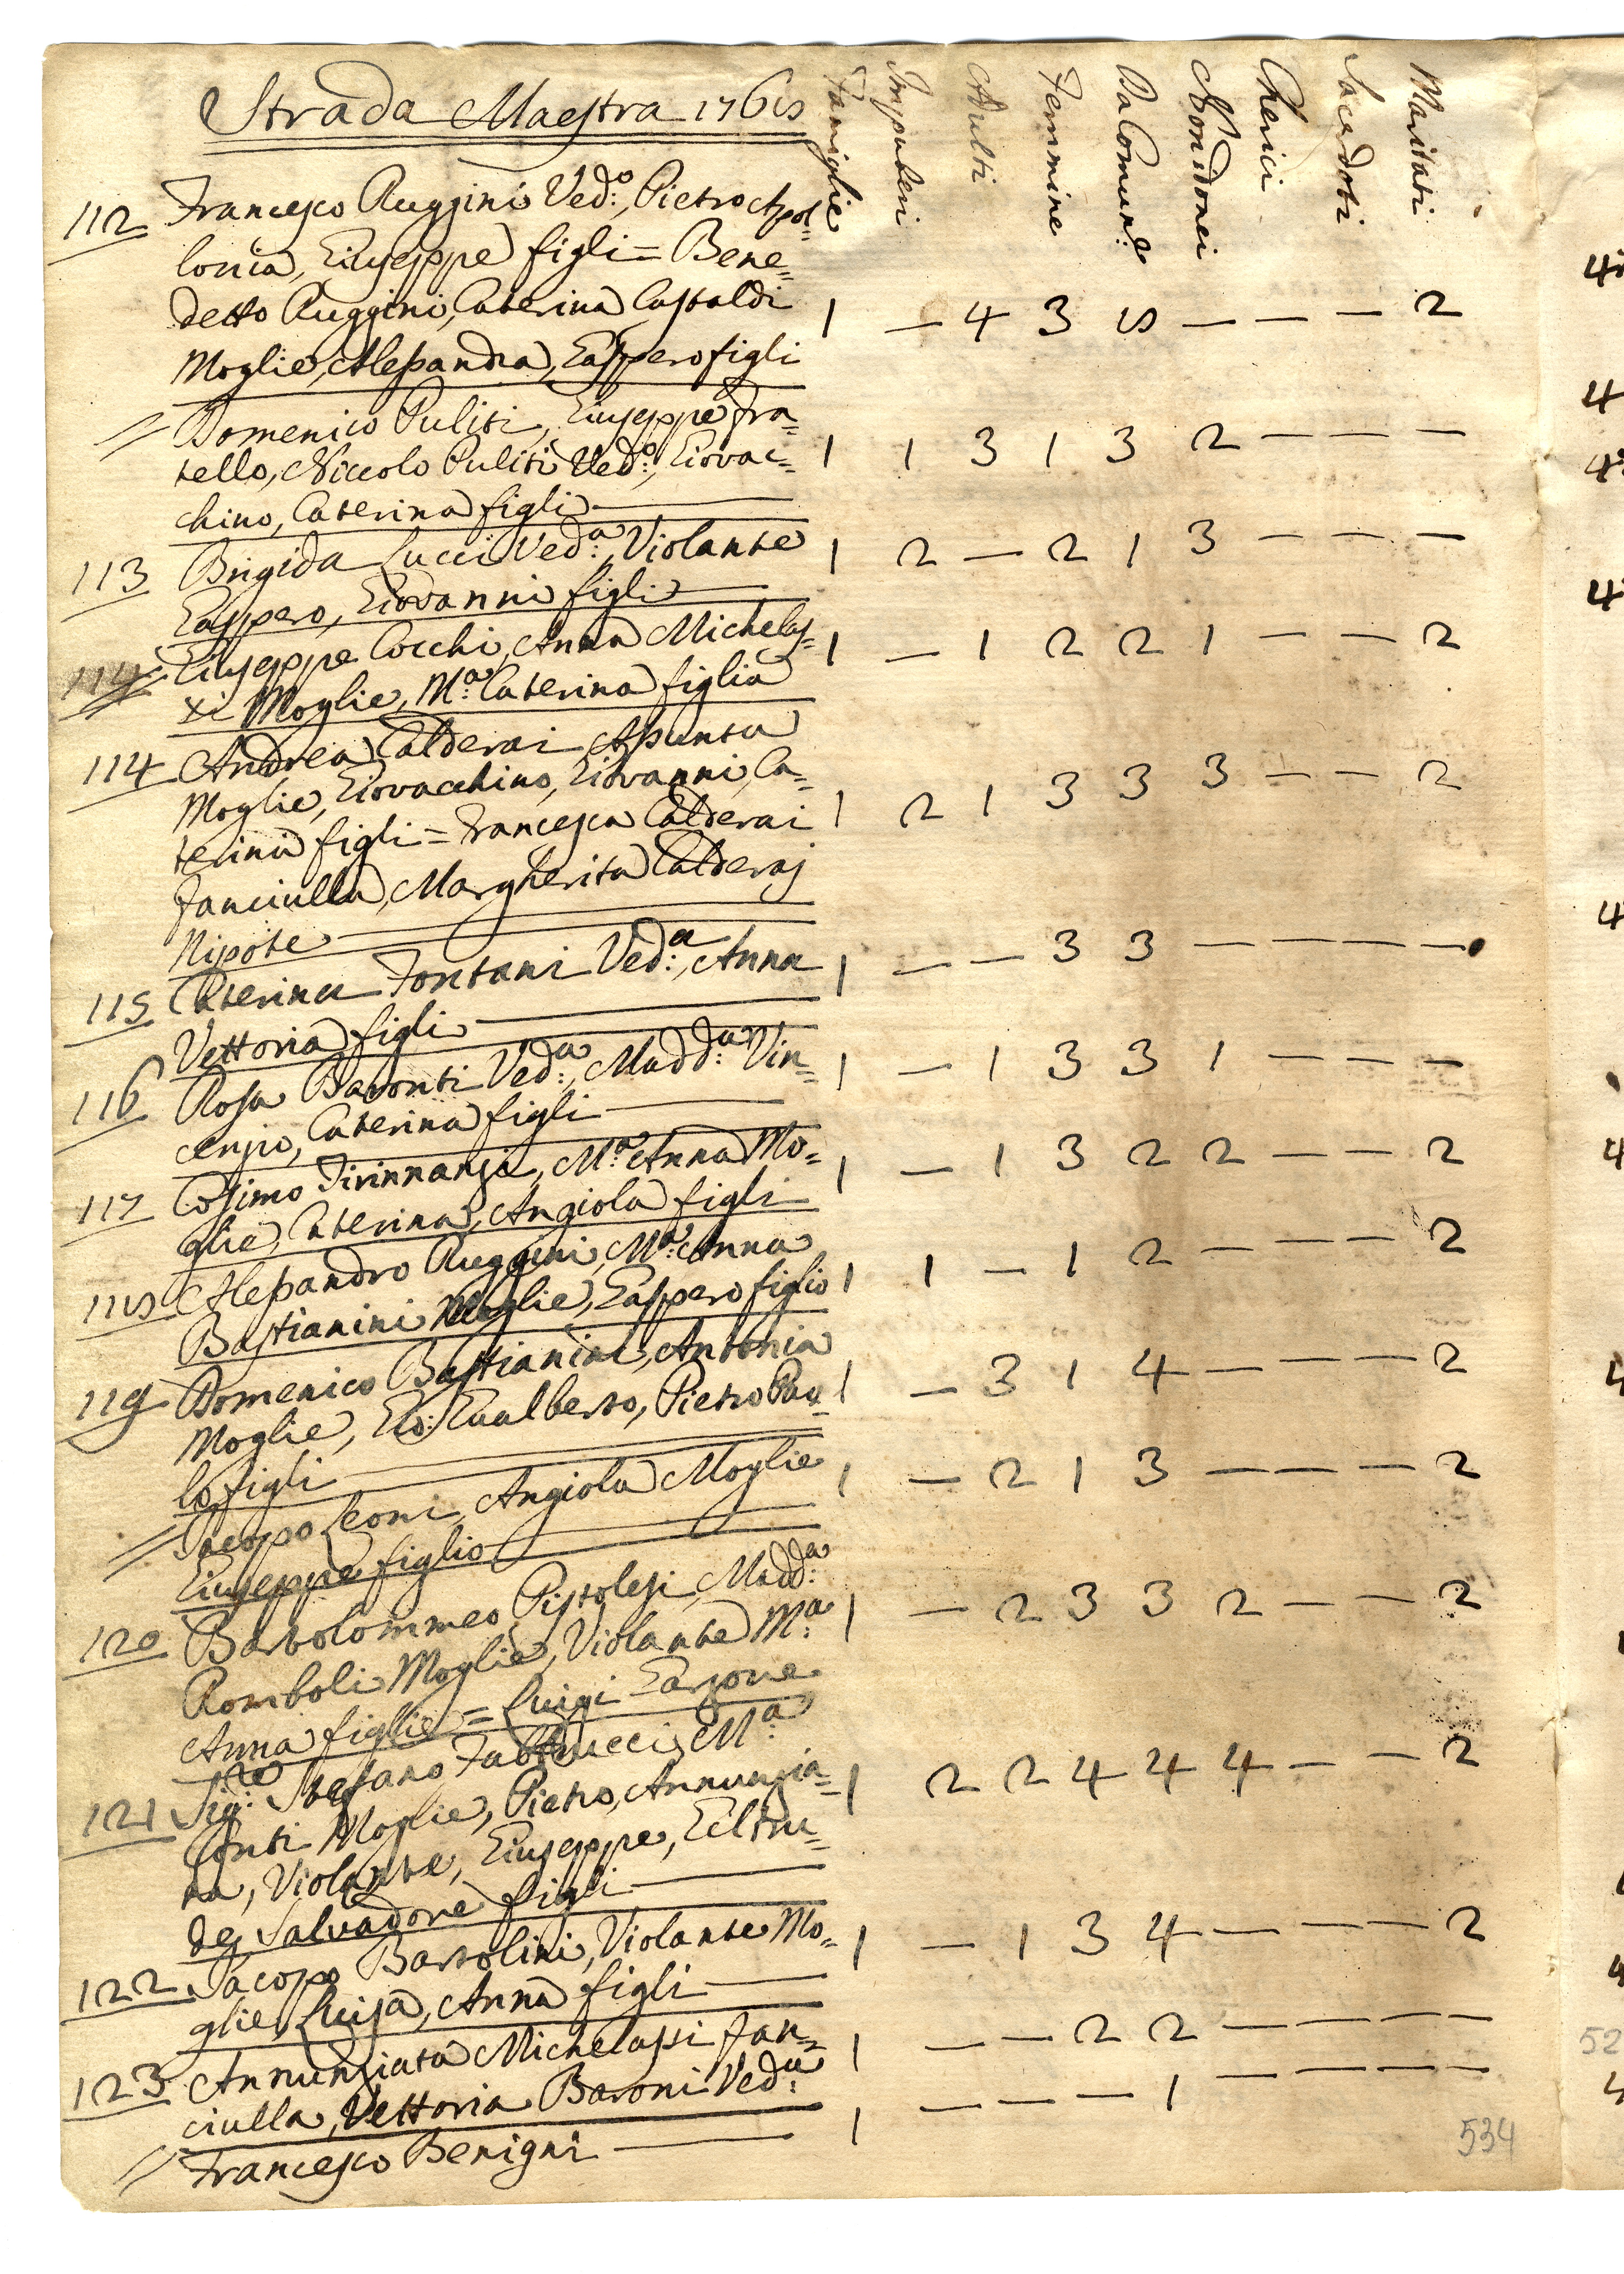 Strada Maestra 1768
Famiglie Impuberi Adulti Femmine Da Comun.e Non idonei Cherici Sacerdoti Maritati
112 Francesco Ruggini Ved.o, Pietro Apol=
lonia, Giuseppe figli = Bene=
detto Ruggini, Caterina Castaldi 1 — 4 3 8 — — — 2
Moglie, Alessandra, Gasppero figli
// Domenico Puliti, Giuseppe fra=
tello, Niccolo Puliti Ved.o, Giovac= 1 1 3 1 3 2 — — —
chino, Caterina figli
113 Brigida Lucci Ved.a, Violante 1 2 — 2 1 3 — — —
Gasppero, Giovanni figli
114 Giuseppe Cocchi, Anna Michelas= 1 — 1 2 2 1 — — 2
xi Moglie, M.a Caterina figlia
114 Andrea Calderai Assunta
Moglie, Giovacchino, Giovanni, Ca=
terina figli = Francesca Calderai 1 2 1 3 3 3 — — 2
fanciulla, Margherita Calderaj
Nipote
115 Caterina Fontani Ved.a, Anna 1 — — 3 3 — — — —
Vettoria figli
116 Rosa Baronti Ved.a, Madd.a Vin= 1 — 1 3 3 1 — — —
cenzio, Caterina figli
117 Cosimo Tirinnanzi, M.a Anna Mo= 1 — 1 3 2 2 — — 2
glie, Caterina, Angiola figli
118 Alessandro Ruggini, M.a Anna
Bastianini Moglie, Gasppero figlio 1 1 — 1 2 — — — 2
119 Domenico Bastianini, Antonia
Moglie, Gio: Gualberto, Pietro Pau= 1 — 3 1 4 — — — 2
lo figli
// Jacopo Leoni, Angiola Moglie 1 — 2 1 3 — — — 2
Giuseppe figlio
120 Bartolommeo Pistolesi, Madd.a
Romboli Moglie, Violante M.a 1 — 2 3 3 2 — — 2
Anna figlie = Luigi Garzone
121 Sig.re Stefano Fabbrucci M.a
Conti Moglie, Pietro, Annunzia= 1 2 2 4 4 4 — — 2
ta, Violante, Giuseppe, Geltru=
de, Salvadore figli
122 Jacopo Bartolini, Violante Mo= 1 — 1 3 4 — — — 2
glie, Luisa, Anna figli
123 Annunziata Michelassi fan= 1 — — 2 2 — — — —
ciulla, Vettoria Baroni Ved.a
// Francesco Benigni 1 — — — 1 — — — —
534